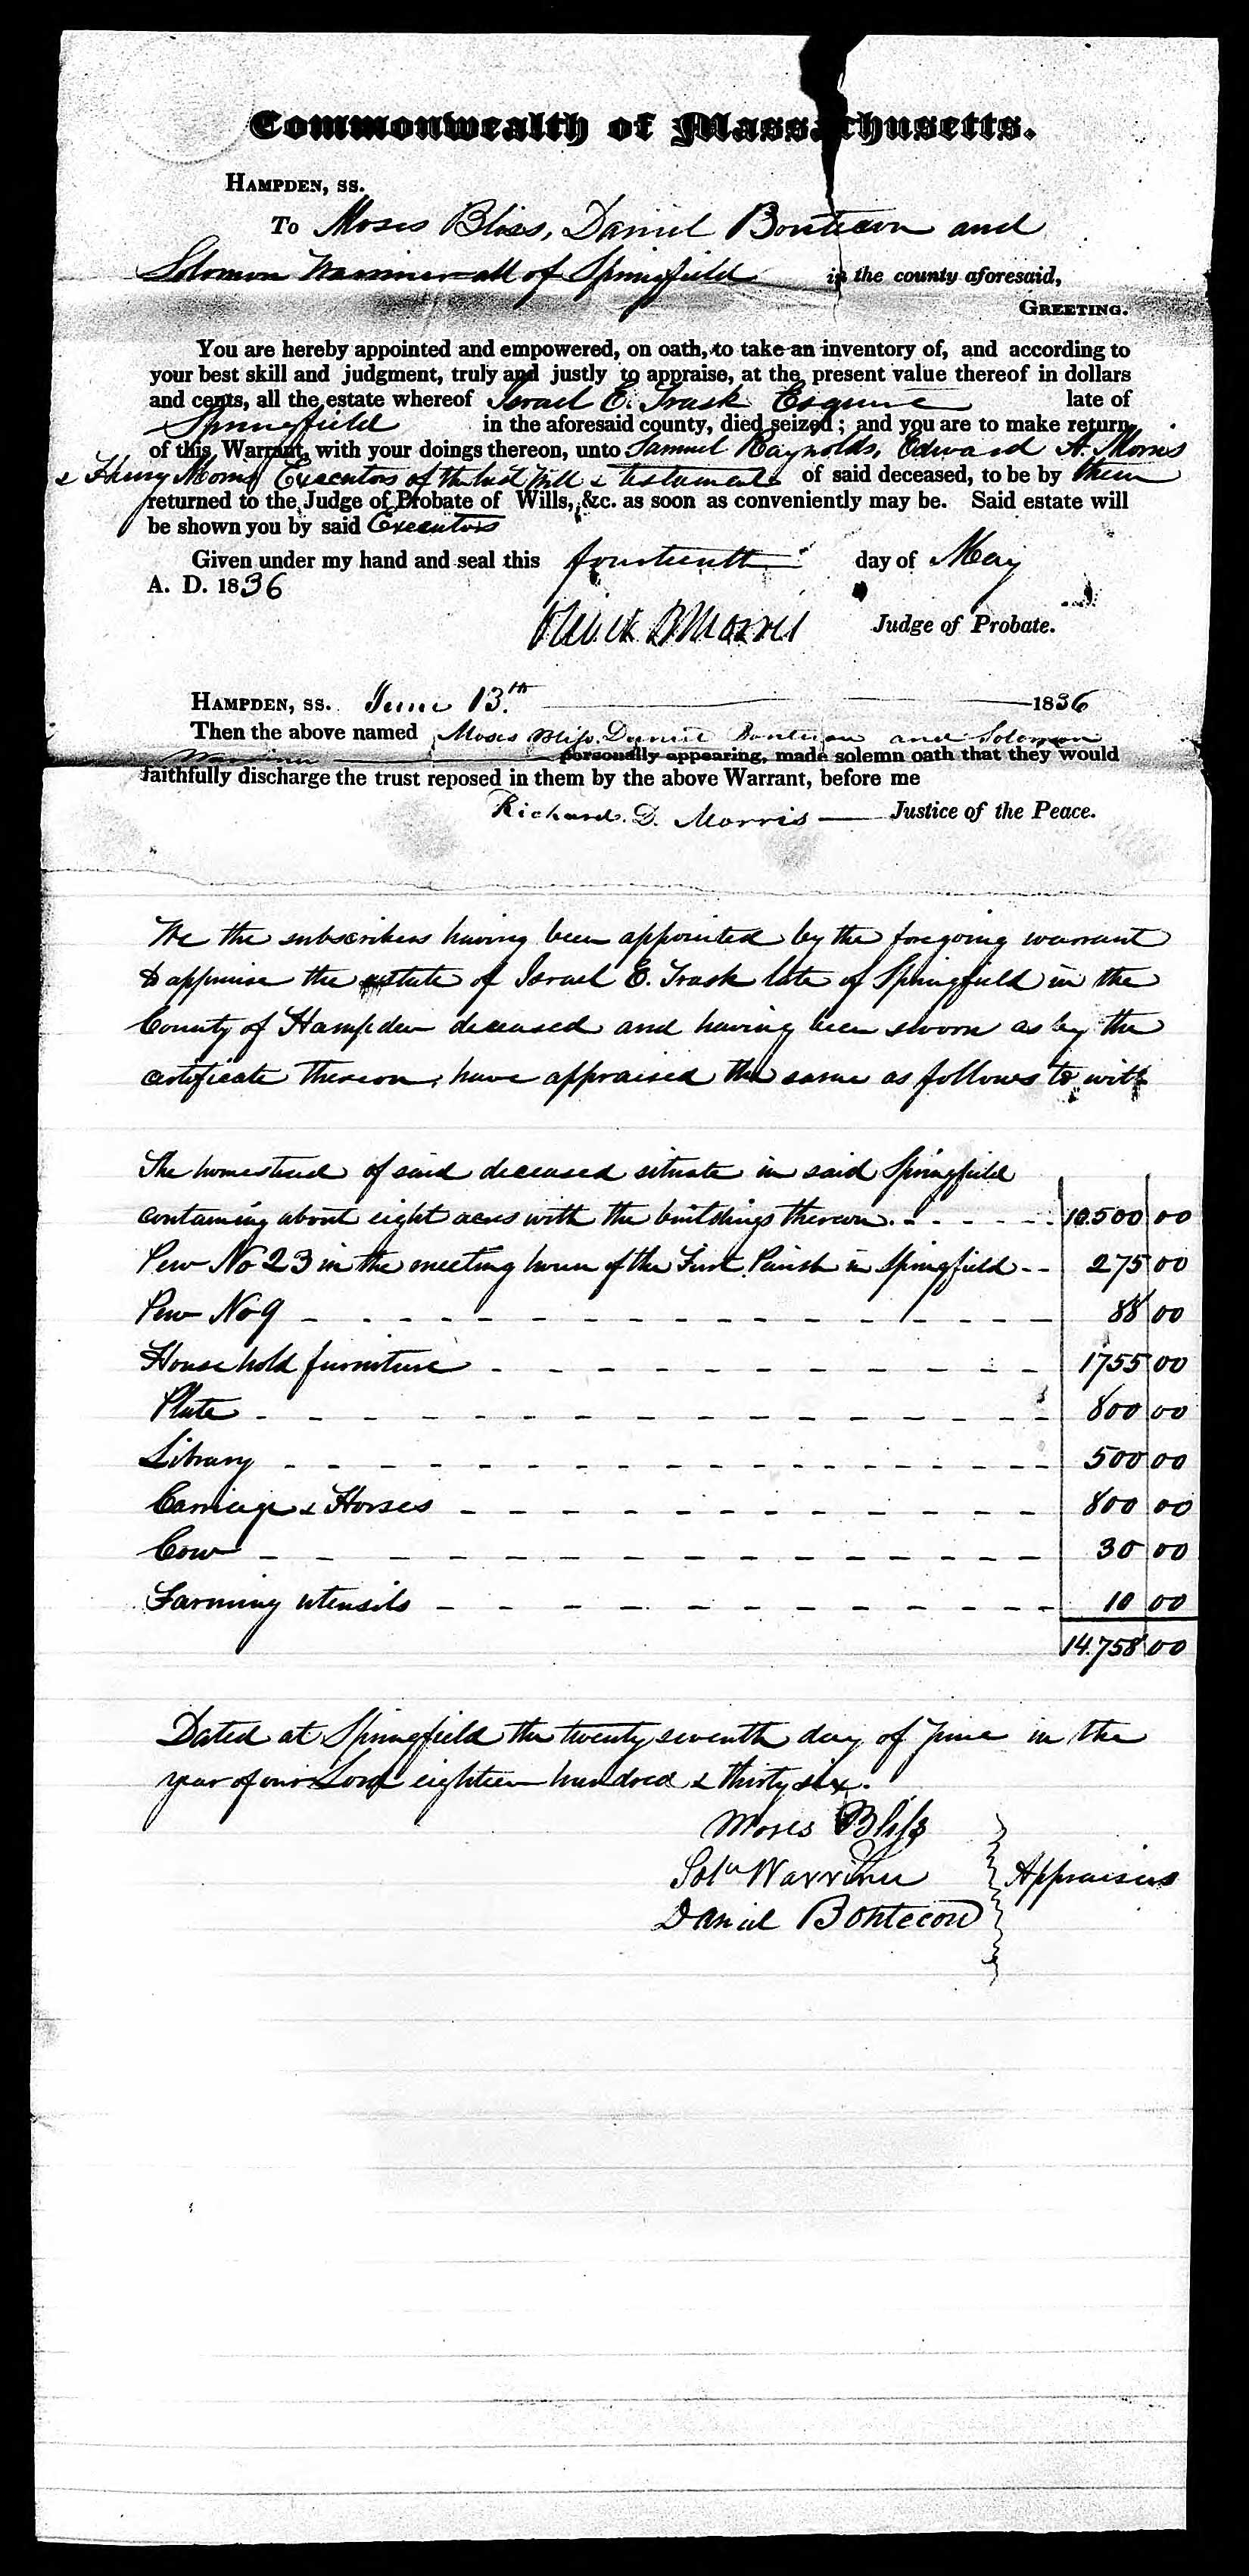 Commonwealth of Massachusetts.
HAMPDEN, SS.
To Moses Bliss, Daniel Bontecou and
Solomon Warriner all of Springfield in the county aforesaid,
GREETING.
You are hereby appointed and empowered, on oath, to take an inventory of, and according to
your best skill and judgment, truly and justly to appraise, at the present value thereof in dollars
and cents, all the estate whereof Israel E. Trask Esquire late of
Springfield in the aforesaid county, died seized; and you are to make return
of this Warrant, with your doings thereon, unto Samuel Raynolds, Edward A. Morris
& Henry Morris Executors of the last Will & testament of said deceased, to be by them
returned to the Judge of Probate of Wills, &c. as soon as conveniently may be. Said estate will
be shown you by said Executors
Given under my hand and seal this fourteenth day of May
A. D. 1836
Oliver B Morris Judge of Probate.
HAMPDEN, SS. June 13.th 1836
Then the above named Moses Bliss. Daniel Bontecou and Solomon
Warriner personally appearing, made solemn oath that they would
faithfully discharge the trust reposed in them by the above Warrant, before me
Richard. D. Morris Justice of the Peace.
We the subscribers having been appointed by the foregoing warrant
to appraise the estate of Israel E. Trask late of Springfield in the
County of Hampden deceased and having been sworn as by the
certificate thereon, have appraised the same as follows to wit
The homestead of said deceased situate in said Springfield
containing about eight acres with the buildings thereon. 10.500 00
Pew No 23 in the meeting house of the First Parish in Springfield 275 00
Pew No 9 88 00
Household furniture 1755 00
Plate 800 00
Library 500 00
Carriage & Horses 800 00
Cow 30 00
Farming utensils 10 00
14.758 00
Dated at Springfield the twenty seventh day of June in the
year of our Lord eighteen hundred & thirty six.
Moses Bliss
Soln Warriner Appraisers
Daniel Bontecou